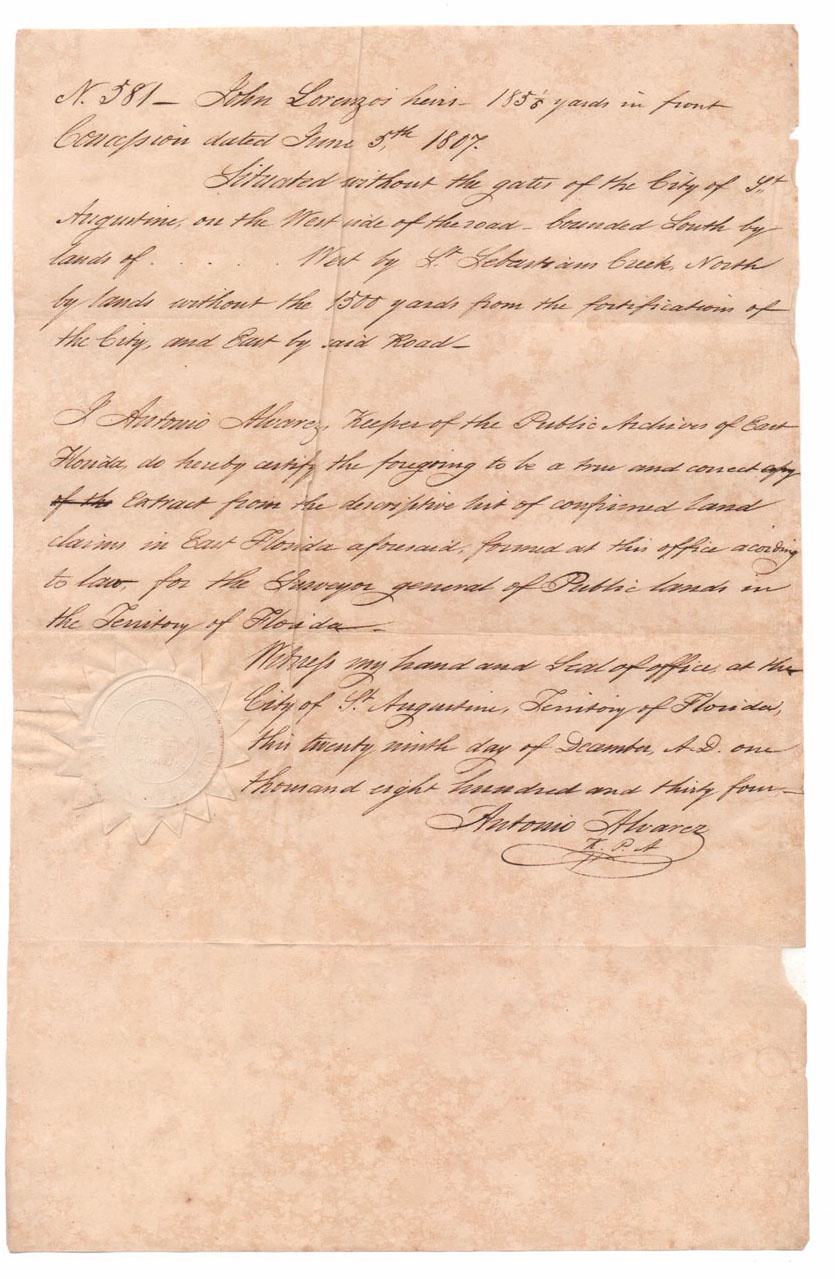 N. 581 – John Lorenzo's heirs – yards in front
Concession dated June 5,th 1807.
Situated without the gates of the City of St
Augustine, on the West side of the road – bounded South by
lands of . . . . . West by St Sebastians Creek, North
by lands without the 1500 yards from the fortifications of
the City, and East by said Road –
I Antonio Alvarez, Keeper of the Public Archives of East
Florida, do hereby certify the foregoing to be a true and correct copy
of the Extract from the descriptive list of confirmed land
claims in East Florida aforesaid, formed at this office acording
to law, for the Surveyor general of Public lands in
the Territory of Florida –
Witness my hand and Seal of office, at the
City of St Augustine, Territory of Florida,
this twenty ninth day of Decamber, A.D. one
thousand eight hundred and thirty four –
Antonio Alvarez
K. P. A